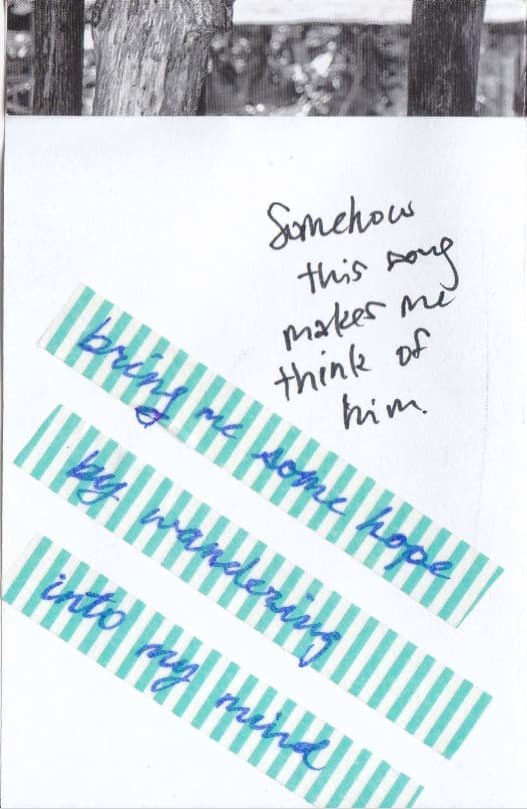 Somehow
this song
makes me
think of
him.
bring me some hope
by wandering
into my mind